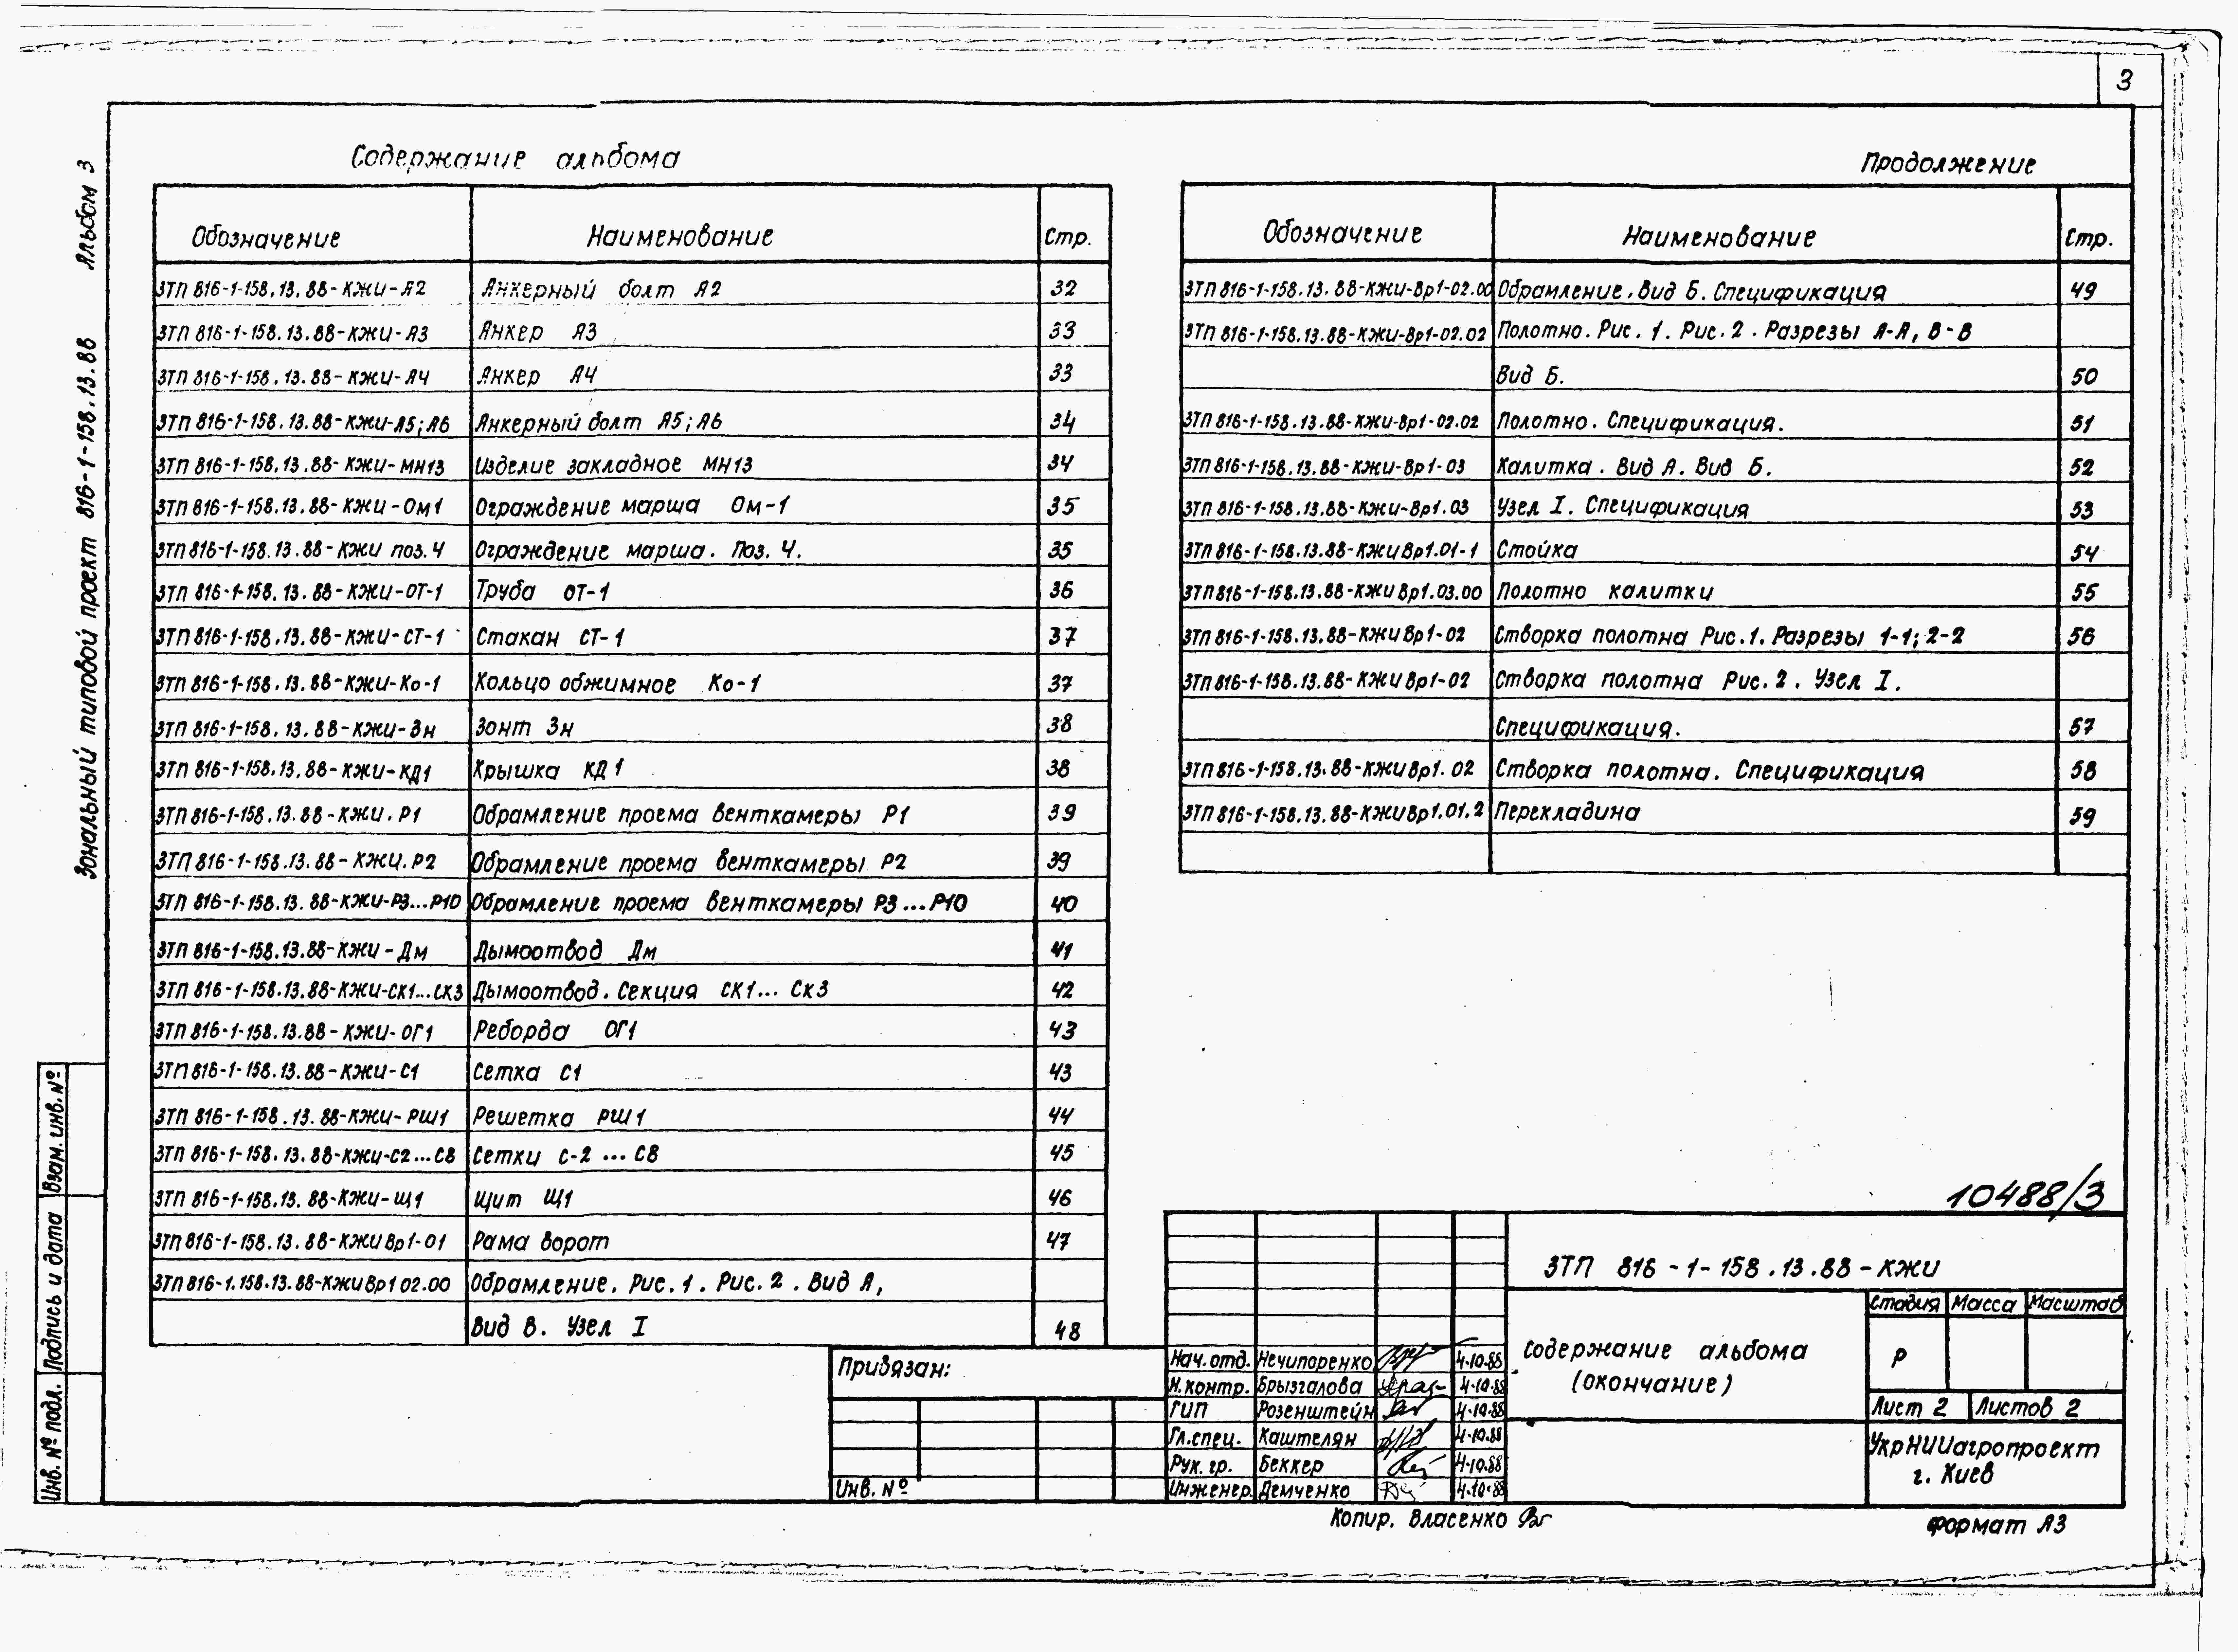 3
Зональный типовой проект 816-1-158.13.88 Альбом 3
Содержание альбома
Обозначение Наименование Стр.
ЗТП 816-1-158.13.88-КЖИ-А2 Анкерный болт А2 32
ЗТП 816-1-158.13.88-КЖИ-А3 Анкер А3 33
ЗТП 816-1-158.13.88-КЖИ-А4 Анкер А4 33
ЗТП 816-1-158.13.88-КЖИ-А5;А6 Анкерный болт А5;А6 34
ЗТП 816-1-158.13.88-КЖИ-МН13 Изделие закладное МН13 34
ЗТП 816-1-158.13.88-КЖИ-Ом1 Ограждение марша Ом-1 35
ЗТП 816-1-158.13.88-КЖИ поз.4 Ограждение марша. Поз. 4. 35
ЗТП 816-1-158.13.88-КЖИ-ОТ-1 Труба ОТ-1 36
ЗТП 816-1-158.13.88-КЖИ-СТ-1 Стакан СТ-1 37
ЗТП 816-1-158.13.88-КЖИ-Ко-1 Кольцо обжимное Ко-1 37
ЗТП 816-1-158.13.88-КЖИ-Зн Зонт Зн 38
ЗТП 816-1-158.13.88-КЖИ-КД1 Крышка КД1 38
ЗТП 816-1-158.13.88-КЖИ.Р1 Обрамление проема венткамеры Р1 39
ЗТП 816-1-158.13.88-КЖИ.Р2 Обрамление проема венткамеры Р2 39
ЗТП 816-1-158.13.88-КЖИ-Р3...Р10 Обрамление проема венткамеры Р3...Р10 40
ЗТП 816-1-158.13.88-КЖИ-Дм Дымоотвод Дм 41
ЗТП 816-1-158.13.88-КЖИ-СК1...СК3 Дымоотвод. Секция СК1... СК3 42
ЗТП 816-1-158.13.88-КЖИ-ОГ1 Реборда ОГ1 43
ЗТП 816-1-158.13.88-КЖИ-С1 Сетка С1 43
ЗТП 816-1-158.13.88-КЖИ-РШ1 Решетка РШ1 44
ЗТП 816-1-158.13.88-КЖИ-С2...С8 Сетки С-2...С8 45
ЗТП 816-1-158.13.88-КЖИ-Щ1 Щит Щ1 46
ЗТП 816-1-158.13.88-КЖИ Вр1-01 Рама ворот 47
ЗТП 816-1.158.13.88-КЖИ Вр1 02.00 Обрамление. Рис. 1. Рис. 2. Вид А,
Вид В. Узел I 48
Продолжение
Обозначение Наименование Стр.
ЗТП 816-1-158.13.88-КЖИ-Вр1-02.00 Обрамление. Вид Б. Спецификация 49
ЗТП 816-1-158.13.88-КЖИ-Вр1-02.02 Полотно. Рис. 1. Рис. 2. Разрезы А-А, В-В
Вид Б. 50
ЗТП 816-1-158.13.88-КЖИ-Вр1-02.02 Полотно. Спецификация. 51
ЗТП 816-1-158.13.88-КЖИ-Вр1-03 Калитка. Вид А. Вид Б. 52
ЗТП 816-1-158.13.88-КЖИ-Вр1.03 Узел I. Спецификация 53
ЗТП 816-1-158.13.88-КЖИ Вр1.01-1 Стойка 54
ЗТП 816-1-158.13.88-КЖИ Вр1.03.00 Полотно калитки 55
ЗТП 816-1-158.13.88-КЖИ Вр1-02 Створка полотна Рис. 1. Разрезы 1-1; 2-2 56
ЗТП 816-1-158.13.88-КЖИ Вр1-02 Створка полотна Рис. 2. Узел I.
Спецификация. 57
ЗТП 816-1-158.13.88-КЖИ Вр1.02 Створка полотна. Спецификация 58
ЗТП 816-1-158.13.88-КЖИ Вр1.01.2 Перекладина 59
10488/3
ЗТП 816-1-158.13.88-КЖИ
Содержание альбома
(окончание)
Стадия Масса Масштаб
Р
Лист 2 Листов 2
УкрНИИагропроект
г. Киев
Нач.отд. Нечипоренко 4.10.88
Н.контр. Брызгалова 4.10.88
ГИП Розенштейн 4.10.88
Гл.спец. Каштелян 4.10.88
Рук.гр. Беккер 4.10.88
Инженер. Демченко 4.10.88
Привязан:
Инв. №
Инв. № подл. Подпись и дата Взам. инв. №
Копир. Власенко
Формат А3